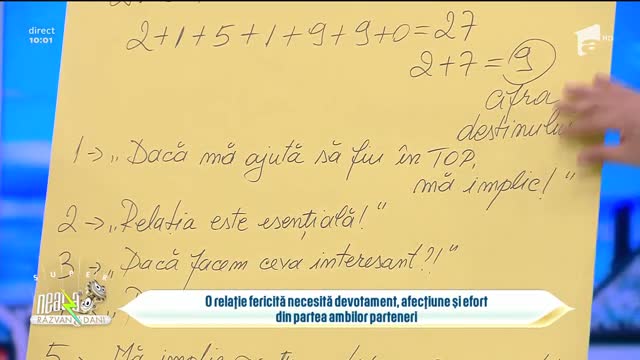 direct
10:01
HD
2+1+5+1+9+9+0=27
2+7=9
cifra
destinului
1→ „Dacă mă ajută să fiu în TOP,
mă implic!“
2→ „Relația este esențială!“
3→ „Dacă facem ceva interesant?!“
SUPER
neatza
RĂZVAN DANI
O relație fericită necesită devotament, afecțiune și efort
din partea ambilor parteneri
5→ „Mă implic